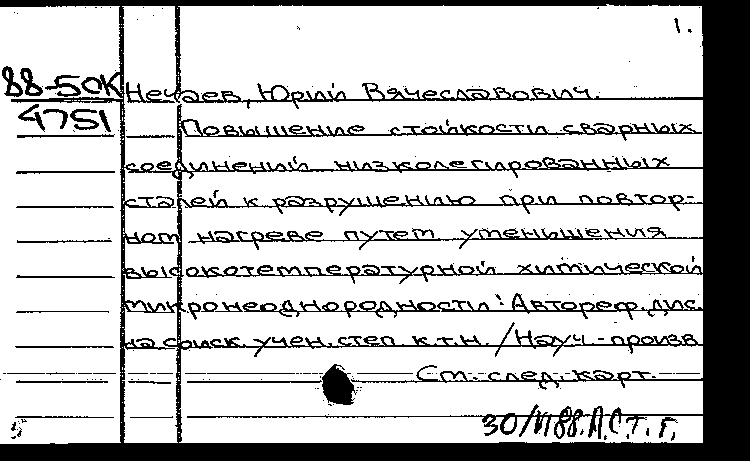 1.
88-50К
4751
Нечаев, Юрий Вячеславович.
Повышение стойкости сварных
соединений низколегированных
сталей к разрушению при повтор-
ном нагреве путем уменьшения
высокотемпературной химической
микронеоднородности: Автореф. дис.
на соиск. учен. степ к.т.н. /Науч.-произв
См. след. карт.
5
30/VI 88. А.С.Т. Г.